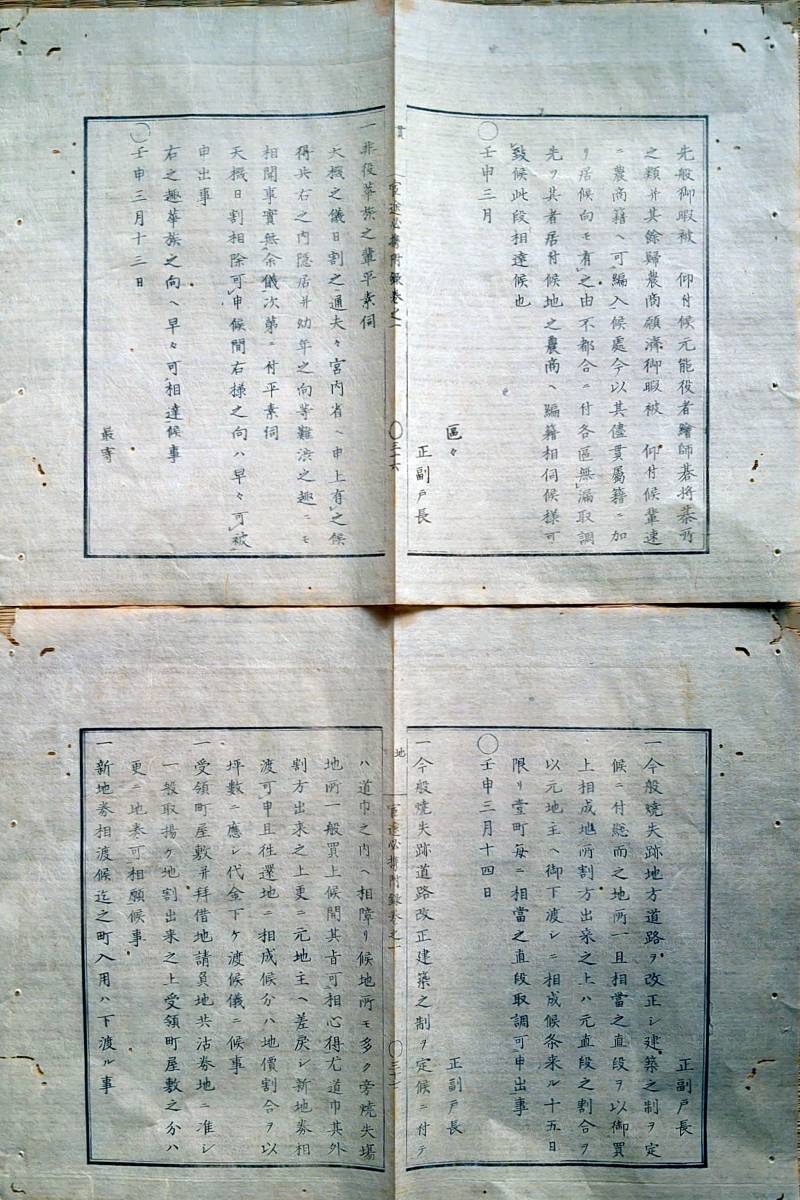 先般御暇被 仰付候元能役者繪師碁將棊所
之類并其餘歸農商願濟御暇被 仰付候輩速
ニ農商籍ヘ可編入候處今以其儘貫屬籍ニ加
リ居候向モ有之由不都合ニ付各區無漏取調
先ヲ其者居付候地之農商ヘ編籍相伺候樣可
致候此段相達候也
○壬申三月
區々
正副戸長
貫
官途必携附録巻之一
○三十六
一非役華族之輩平素伺
天機之儀日割之通夫々宮内省ヘ申上有之候
得共右之内隱居并幼年之向等難澁之趣ニモ
相聞事實無余儀次第ニ付平素伺
天機日割相除可申候間右樣之向ハ早々可被
申出事
右之趣華族之向ヘ早々可相達候事
○壬申三月十三日
最寄
正副戸長
一今般燒失跡地方道路ヲ改正シ建築之制ヲ定
候ニ付惣而之地所一且相當之直段ヲ以御買
上相成地所割方出來之上ハ元直段之割合ヲ
以元地主ヘ御下渡シニ相成候条来ル十五日
限リ壹町每ニ相當之直段取調可申出事
○壬申三月十四日
正副戸長
一今般燒失跡道路改正建築之制ヲ定候ニ付テ
地
官途必携附録巻之一
○三十七
ハ道巾之内ヘ相障リ候地所モ多ク旁燒失塲
地所一般買上候間其旨可相心得尤道巾其外
割方出來之上更ニ元地主ヘ差戻シ新地券相
渡可申且往還地ニ相成候分ハ地價割合ヲ以
坪數ニ應シ代金下ケ渡候儀ニ候事
一受領町屋敷并拜借地請負地共沽券地ニ准シ
一般取揚ケ地割出來之上受領町屋敷之分ハ
更ニ地券可相願候事
一新地券相渡候迄之町入用ハ下渡ル事